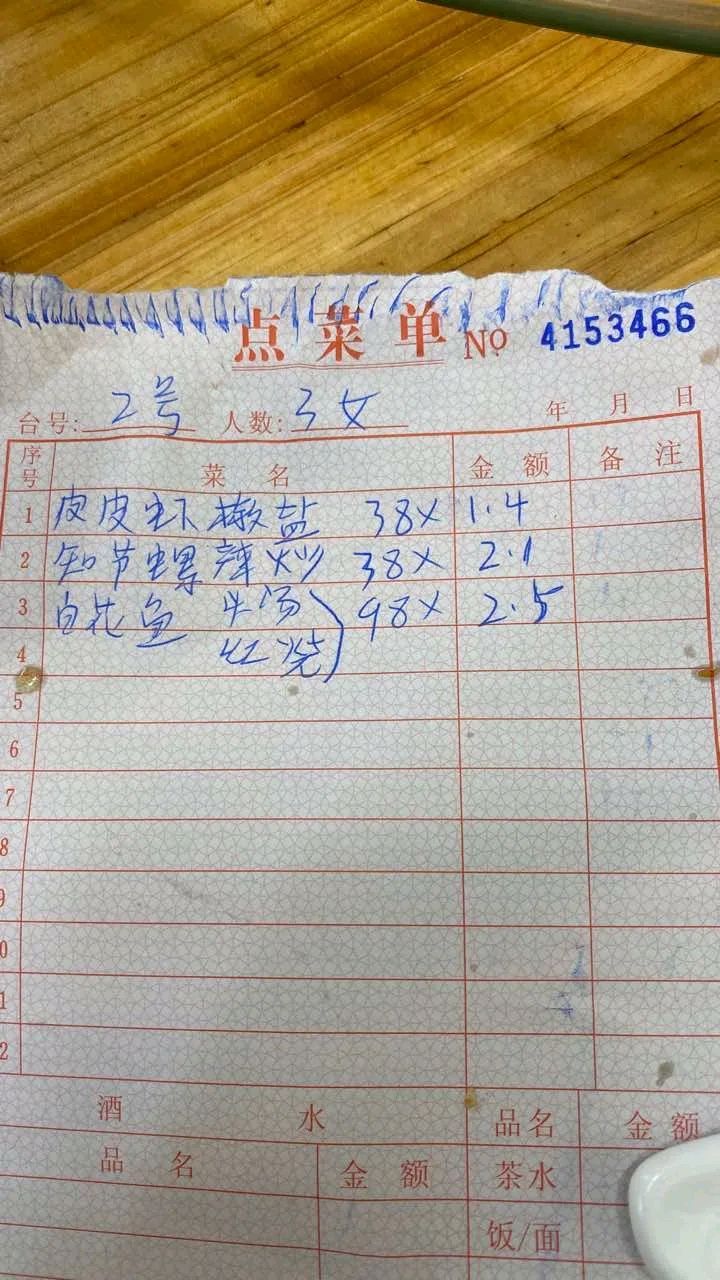 点菜单 No 4153466
台号: 2号 人数: 3女 年 月 日
序号 菜名 金额 备注
1 皮皮虾椒盐 38X 1.4
2 知节螺辣炒 38X 2.1
3 白花鱼 半汤 98X 2.5
4 红烧
5
6
7
8
9
0
1
2
酒水 品名 金额
品名 金额 茶水
饭/面